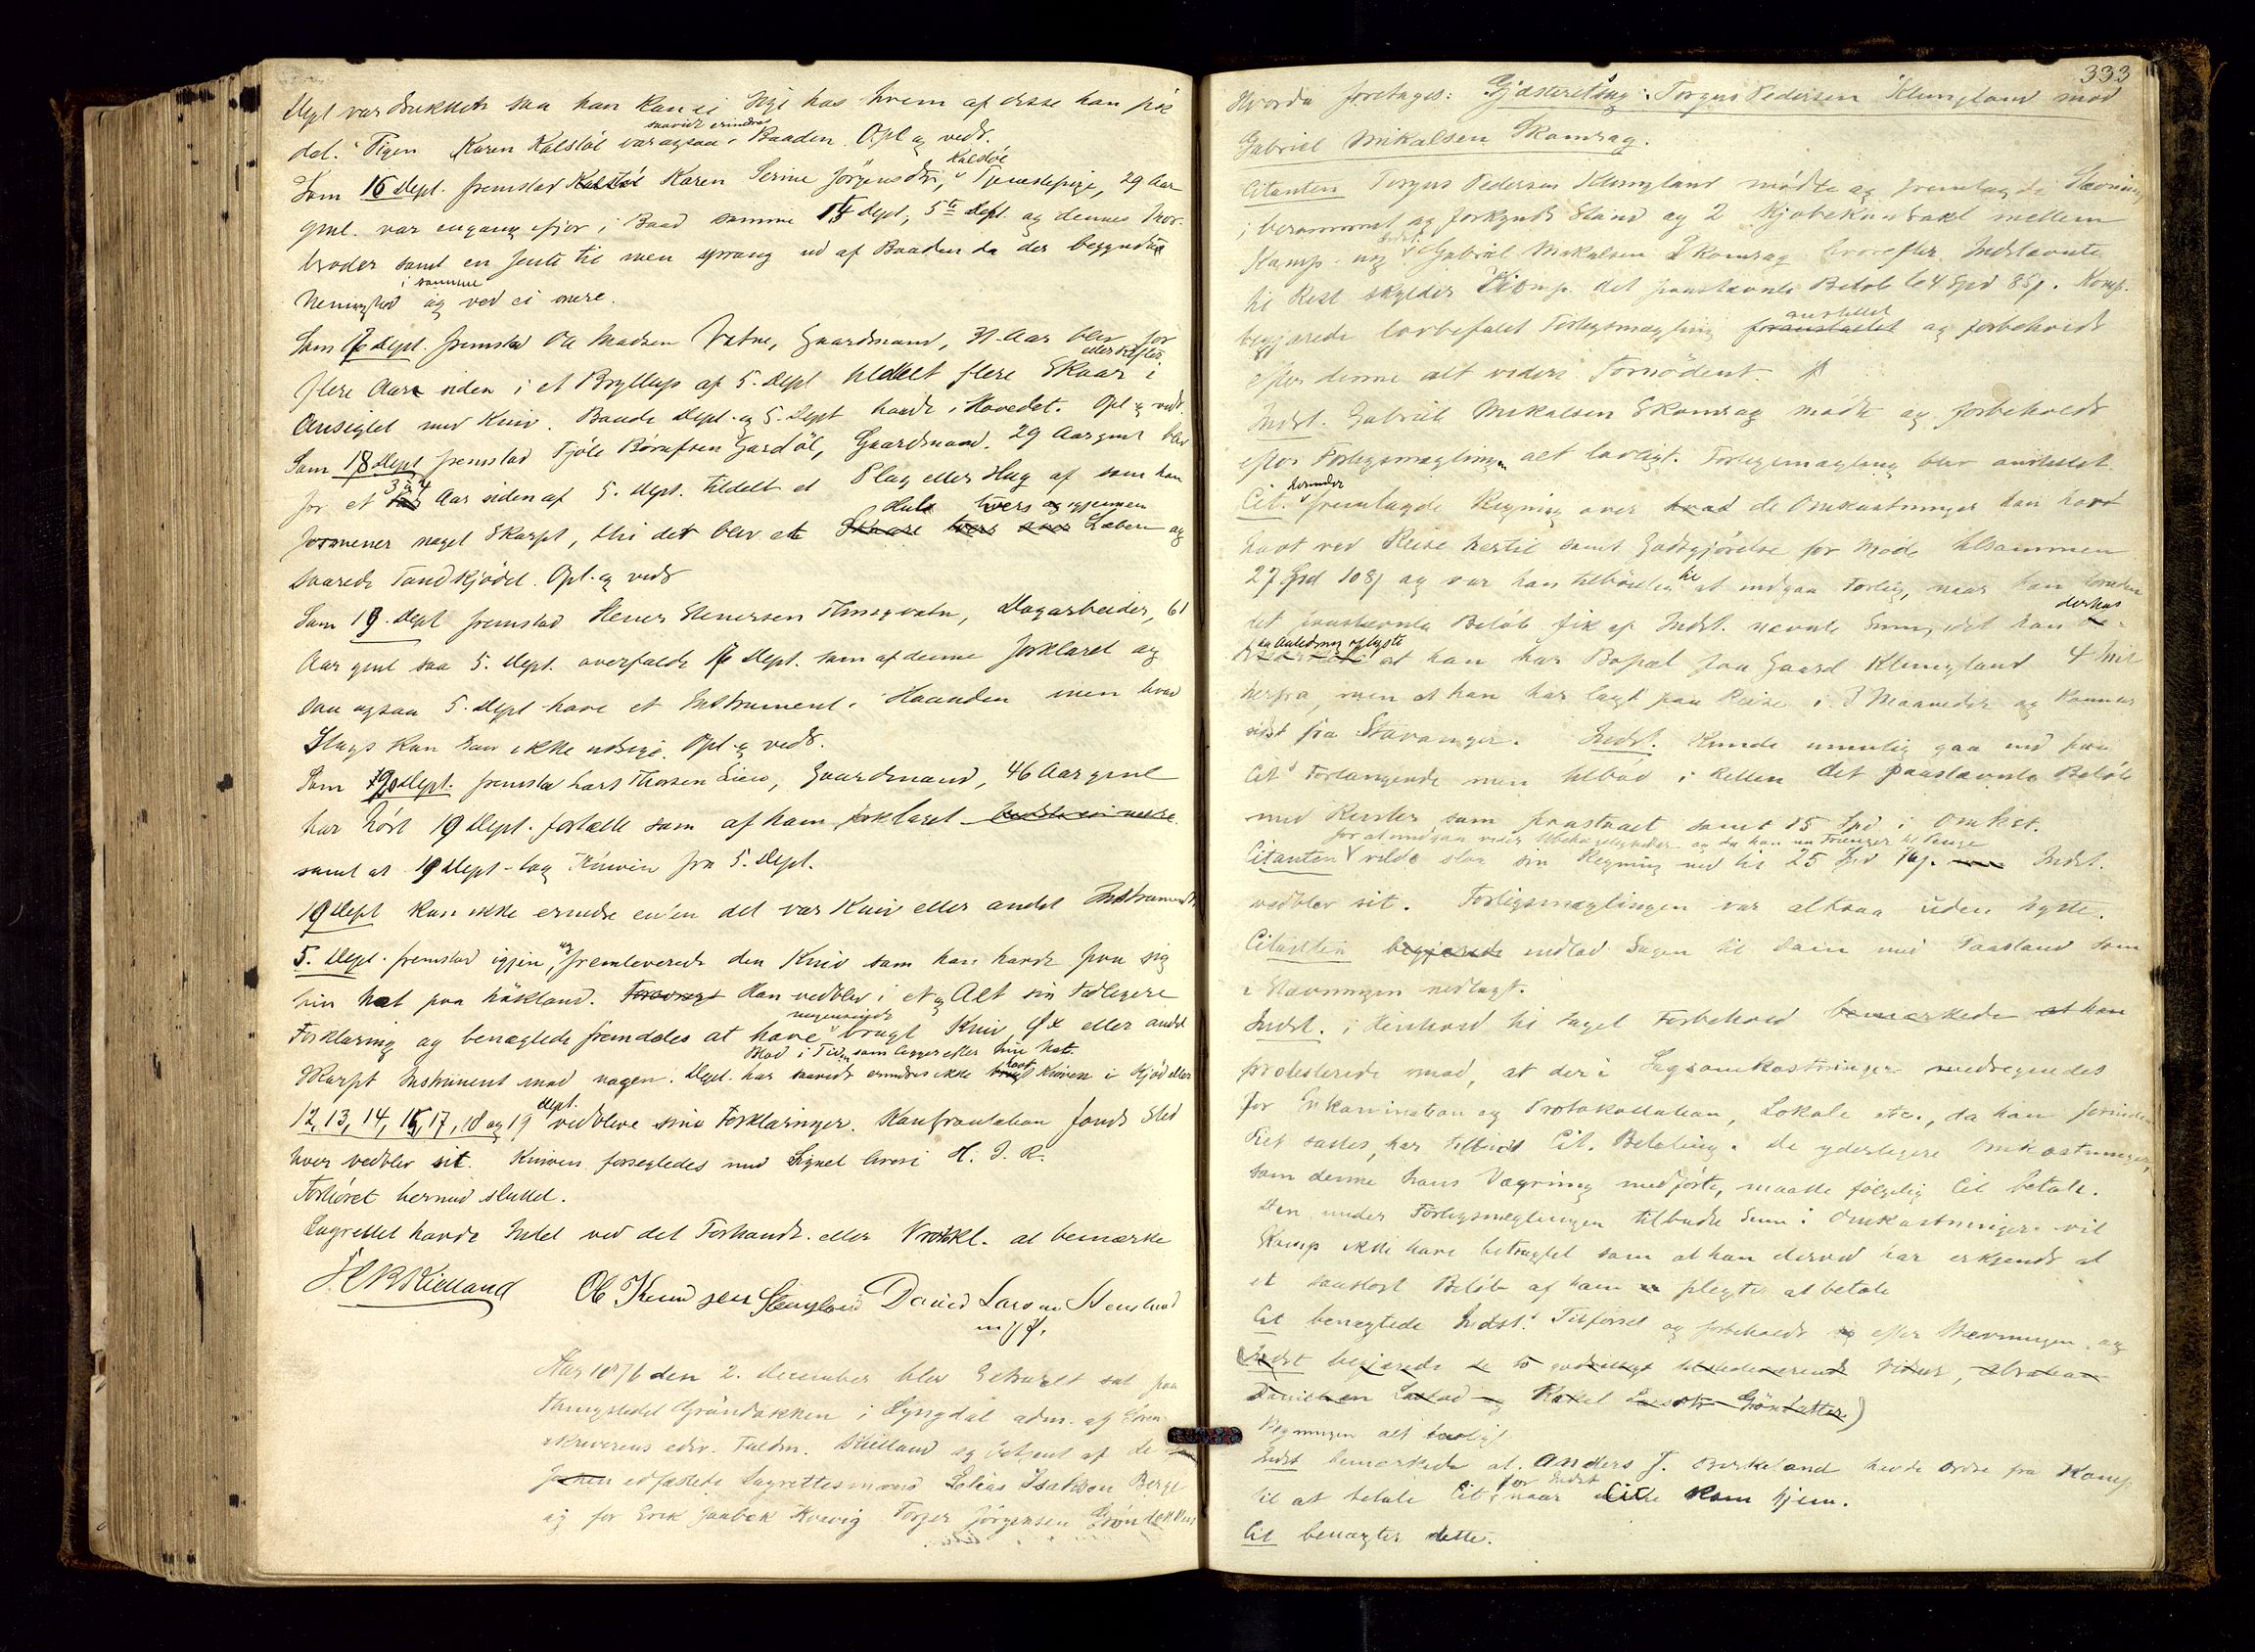 Dept var drukken saa han kan ei sige hos hvem af disse han fik
det. Pigen Karen Kalstøl var ogsaa saavidt erindres i Baaden. Opl og vedt.
Som 16 Dept. fremstod Karen Serine Jörgensdtr, Kalstöl Tjenestepige, 29 Aar
gml. var engang ifjor i Baad samme 15 Dept, 5te Dept. og dennes Svo-
broder samt en Jente til men sprang ud af Baaden da der begyndte
i samme Uenighed og ved ei mere.
Som 17 Dept. fremstod Ole Madsen Vatne, Gaardmand, 31 Aar blev for
flere Aar siden i et Bryllup af 5. Dept tildelt flere Skaar i
Ansigtet med Kniv. Baade Dept. og 5. Dept havde i Hovedet. Opl. og vedt.
Som 18 Dept fremstod Tjöle Gardöl, Gaardmand, 29 Aar gml blev
for et 3 a 4 Aar siden af 5. Dept. tildelt et Slag eller Hug af som han
formener noget Skarpt, thi det blev et Hul tvers igjennem Læben og
saarede Tandkjødet. Opl. og vedt
Som 19. Dept fremstod Stener Stenersen, Dagarbeider, 61
Aar gml saa 5. Dept. overfalde 17 Dept. som af denne forklaret og
saa ogsaa 5. Dept have et Instrument i Haanden men hvad
Slags kan han ikke udsige. Opl. og vedt.
Som 20 Dept. fremstod Lars Thorsen Lien, Gaardmand, 46 Aar gml
har hört 19 Dept. fortælle som af ham forklaret
samt at 19 Dept. tog Kniven fra 5. Dept.
19 Dept kan ikke erindre enten det var Kniv eller andet Instrument
5. Dept. fremstod igjen, og fremleverede den Kniv som han havde paa sig
hin Nat paa Håkland. Han vedblev i et og Alt sin tidligere
Forklaring og benægtede fremdeles at have nogensinde brugt Kniv, Øx eller andet
skarpt Instrument mod nogen. Dept. har saavidt erindres ikke havt Kniven i Kjød eller
Blod i Tiden som ligger efter hin Nat.
12, 13, 14, 16, 17, 18 og 19 Dept. vedbleve sine Forklaringer. Konfrontation fandt Sted
hver vedblev sit. Kniven forsegledes med Signet hvori H. J. R.
Forhöret hermed sluttet.
Lagrettet havde Intet ved det Forhandl. eller Protokl. at bemærke
Kielland Ole Knudsen David Larsen
m p P.
Aar 1876 den 2. December blev Extraret sat paa
Thingstedet Gröndokken i Lyngdal adm. af Soren-
skriverens edsv. Fuldm. Kielland og betjent af de
edfæstede Lagrettesmænd Tobias Isaksen Berge
og for Erik Jaabæk Kvavig Torger Jörgensen Gröndokken
333
Hvorda foretages: Gjæsteretssag: Torgus Pedersen Klungland mod
Gabriel Mikalsen Skomrag.
Citanten Torgus Pedersen Klungland mödte og fremlagde Stævning
i berammet og forkyndt Stand og 2 Kjøbekontrakt mellem
Komp. og Indst. Gabriel Mikalsen Skomrag hvorefter Indstævnte
til Rest skylder Komp. det paastævnte Belöb 64 Spd 85 s. Komp.
begjærede lovbefalet Forligsmægling anstillet og forbeholdt
efter denne alt videre Fornödent.
Indst. Gabriel Mikalsen Skomrag mødte og forbeholdt
efter Forligsmæglingen alt lovligt. Forligsmægling blev anstillet.
Cit. herunder fremlagde Regning over de Omkostninger han
havt ved Reise hertil samt Godtgjörelse for Møde tilsammen
27 Spd 108 s og var han tilböielig til at indgaa Forlig, naar han foruden
det paastævnte Belöb fik af Indst. nævnte Sum, idet han derhos
at han har Bopæl paa Gaard Klungland 4 Mil
herfra, men at han har lagt paa Reise i 3 Maaneder og kommer
sidst fra Stavanger. Indst. kunde umulig gaa ind paa
Cits Forlangende men tilbød i Retten det paastævnte Belöb
med Renter som paastaaet samt 15 Spd i Omkst.
Citanten for at undgaa videre Ubehageligheder og da han nu trænger til Penge vilde slaa sin Regning ned til 25 Spd Indst.
vedblev sit. Forligsmæglingen var altsaa uden Nytte.
Citanten indlod Sagen til Dom med Paastand som
i Stævningen nedlagt.
Indst. i Henhold til taget Forbehold
protesterede mod, at der i Sagsomkostninger medregnedes
for Examination og Protokollation, Lokale etc., da han forinden
Ret sattes, har tilbudt Cit. Betaling. De yderligere Omkostninger,
som denne hans Vægring medførte, maatte følgelig Cit betale.
Den under Forligsmæglingen tilbudte Sum i Omkostninger vil
Komp ikke have betragtet som at han derved har erkjendt at
et saastort Belöb af ham pligter at betale
Cit benægtede Indst.s Tilførsel og forbeholdt efter Stævningen og
Regningen alt lovligt
Indst bemærkede at Anders J. Birkeland havde Ordre fra Komp.
til at betale Cit for Indst naar Citte kom hjem.
Cit benægter dette.